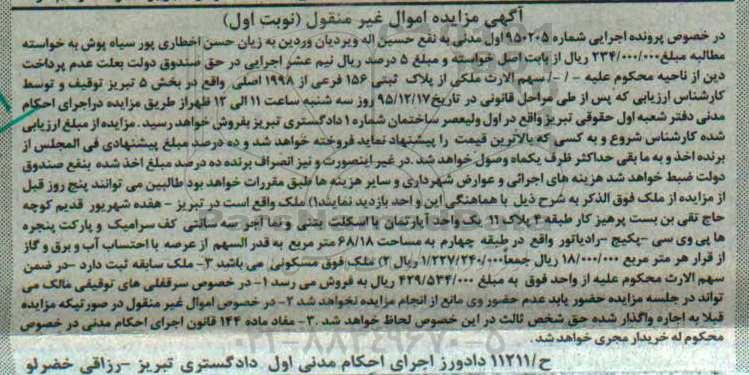 آگهی مزایده اموال غیر منقول (نوبت اول)
در خصوص پرونده اجرایی شماره ۹۵۰۲۰۵ اول مدنی به نفع حسین اله ویردیان وردین به زیان حسن اخطاری پور سیاه پوش به خواسته
مطالبه مبلغ ۲۳۴/۰۰۰/۰۰۰ ریال از بابت اصل خواسته و مبلغ ۵ درصد ریال نیم عشر اجرایی در حق صندوق دولت بعلت عدم پرداخت
دین از ناحیه محکوم علیه - /- / سهم الارث ملکی از پلاک ثبتی ۱۵۶ فرعی از ۱۹۹۸ اصلی واقع در بخش ۵ تبریز توقیف و توسط
کارشناس ارزیابی که پس از طی مراحل قانونی در تاریخ ۹۵/۱۲/۱۷ روز سه شنبه ساعت ۱۱ الی ۱۲ ظهر از طریق مزایده در اجرای احکام
مدنی دفتر شعبه اول حقوقی تبریز واقع در اول ولیعصر ساختمان شماره ۱ دادگستری تبریز بفروش خواهد رسید . مزایده از مبلغ ارزیابی
شده کارشناس شروع و به کسی که بالاترین قیمت را پیشنهاد نماید فروخته خواهد شد و ده درصد مبلغ پیشنهادی فی المجلس از
برنده اخذ و به ما بقی حداکثر ظرف یکماه وصول خواهد شد .در غیر اینصورت و نیز انصراف برنده ده درصد مبلغ اخذ شده بنفع صندوق
دولت ضبط خواهد شد هزینه های اجرائی و عوارض شهرداری و سایر هزینه ها طبق مقررات خواهد بود طالبین می توانند پنج روز قبل
از مزایده از ملک فوق الذکر به شرح ذیل با هماهنگی این و احد بازدید نمایند۱) ملک واقع است در تبریز - هفده شهریور قدیم کوچه
حاج تقی بن بست پرهیز کار طبقه ۴ پلاک ۱۱ یک واحد آپارتمان با اسکلت بتنی و نما آجر سه سانتی کف سرامیک و پارکت پنجره
ها پی وی سی -پکیج -رادیاتور واقع در طبقه چهارم به مساحت ۶۸/۱۸ متر مربع به قدر السهم از عرصه با احتساب آب و برق و گاز
از قرار هر متر مربع ۱۸/۰۰۰/۰۰۰ ریال جمعا ۱/۲۲۷/۲۴۰/۰۰۰ ریال ۲) ملک فوق مسکونی می باشد ۳- ملک سابقه ثبت دارد -در ضمن
سهم الارث محکوم علیه از واحد فوق به مبلغ ۴۲۹/۵۳۴/۰۰۰ ریال به فروش می رسد ۱- در خصوص سرقفلی های توقیفی مالک می
تواند در جلسه مزایده حضور یابد عدم حضور وی مانع از انجام مزایده نخواهد شد ۲- در خصوص اموال غیر منقول در صورتیکه مزایده
قبلا به اجاره واگذار شده حق شخص ثالث در این خصوص لحاظ خواهد شد .۳- مفاد ماده ۱۴۴ قانون اجرای احکام مدنی در خصوص
محکوم له خریدار مجری خواهد شد.
ح/۱۱۲۱۱ دادورز اجرای احکام مدنی اول دادگستری تبریز -رزاقی خضرلو
۰۲۱-۸۸۳۴۹۶۷۰-۵